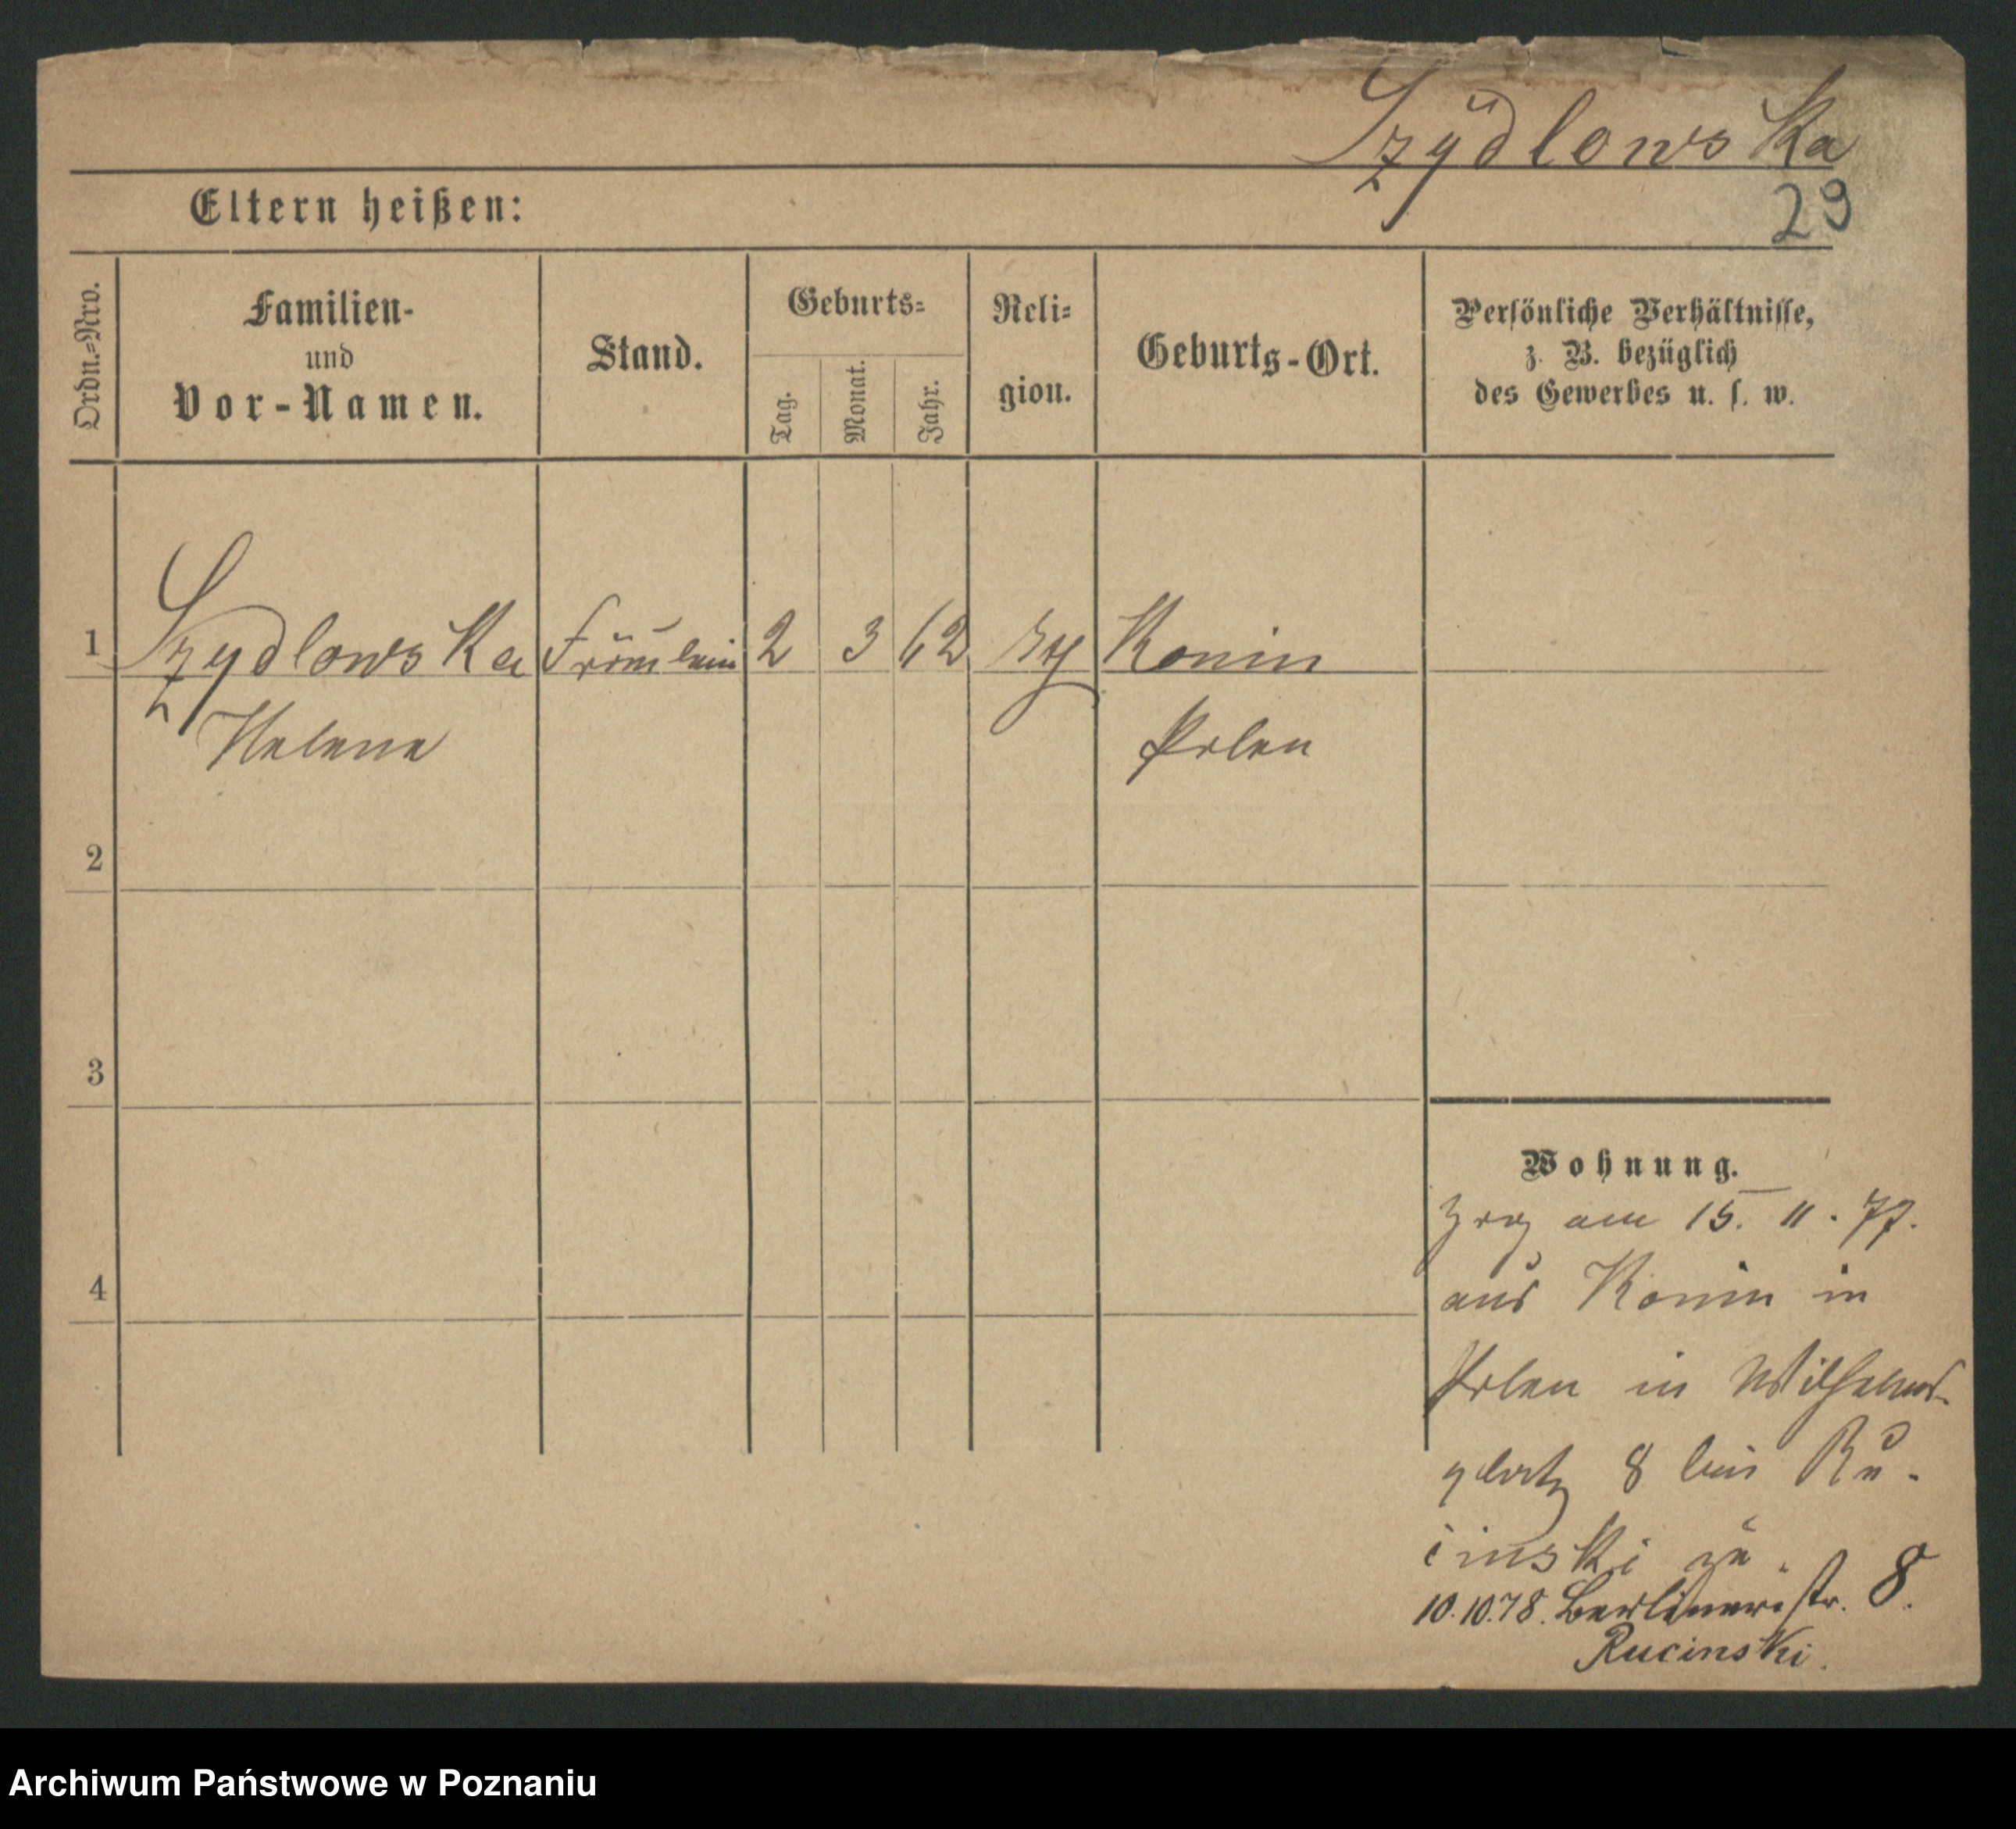 Szÿdlowska
29
Eltern heißen:
Ordn.=Nro.
Familien-
und
Vor-Namen.
Stand.
Geburts=
Tag.
Monat.
Jahr.
Reli=
gion.
Geburts-Ort.
Persönliche Verhältnisse,
z. B. bezüglich
des Gewerbes u. s. w.
1 Szydlowska Fräulein 2 3 62 Konin
Helene Polen
2
3
4
Wohnung.
Zog am 15. 11. 77.
aus Konin in
Polen in Wilhelms-
platz 8 bei Ru-
cinski zu.
10.10.78. Berlinerstr. 8.
Rucinski.
Archiwum Państwowe w Poznaniu